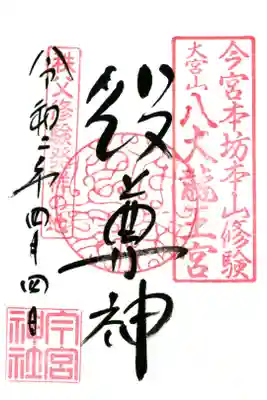 今宮本坊本山修験
大宮山 八大龍王宮
役尊神
秩父修験発祥の地
令和二年四月四日
今宮
神社